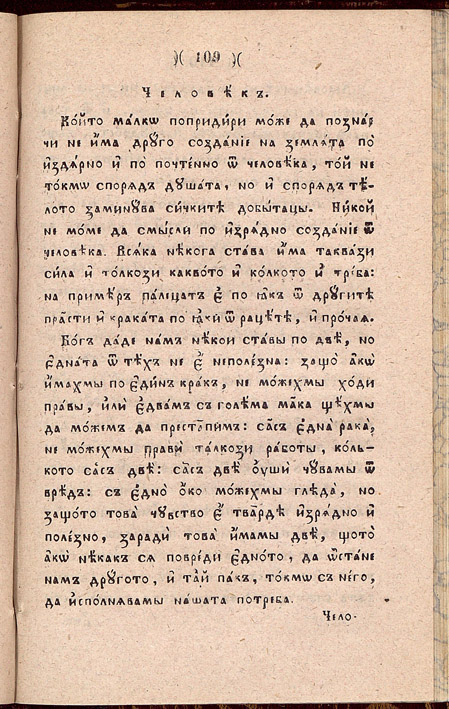 )( 109 )(
Человѣкъ.
Ко́йто ма́лкѡ попридѝри мо́же да позна́е
чи не и҆́ма дрꙋ́го созда́нїе на землѧ́та по̀
и҆здѧ́рно и҆ по̀ почте́нно ѿ человѣ́ка, то́й не
то́кмѡ споря́дъ дꙋша́та, но и҆ споря́дъ тѣ́-
лото замину́ва си́чките добы́тацы. Ни́кой
не мо́же да смы́сли по и҆зрѧ́дно созда́нїе ѿ
человѣ́ка. Всѧ́ка нѣ́кога ста́ва и҆́ма таква́зи
си́ла и҆ то́лкози какво́то и҆ ко́лкото и҆̀ тре́ба:
на примѣ́ръ па́лецатъ є҆̀ по ꙗ҆́къ ѿ дрꙋ́гитѣ
пра́сти и҆ крака́та по ꙗ҆́ки ѿ рацѣ́тѣ, и҆ про́чаѧ.
Бо́гъ да́де на́мъ нѣ́кои ста́вы по две́, но
є҆дна́та ѿ тѣ́хъ не є҆̀ неполе́зна: защо̀ а҆́кѡ
и҆́махмы по є҆ди́нъ кра́къ, не мо́жехмы хо́ди
пра́вы, и҆лѝ є҆два́мъ съ голѣ́ма ма́ка щѣ́хмы
да мо́жемъ да престѫ́пимъ: са́съ є҆дна̀ рака̀,
не мо́жехмы пра́ви то́лкози ра́боты, ко́ль-
кото са́съ двѣ̀: са́съ двѣ̀ ꙋ҆́ши чꙋ́вамы ѿ
вре́дъ: съ є҆дно̀ ѻ҆́ко мо́жехмы гле́да, но
защо́то това̀ чꙋ́вство є҆̀ тва́рде и҆зрѧ́дно и҆
поле́зно, заради̂ това̀ и҆́мамы двѣ̀, щото̀
а҆́кѡ нѣ́какъ сѧ повре́ди є҆дно́то, да ѡ҆ста́не
намъ дрꙋ́гото, и҆ та́й па́къ, то́кмѡ съ не́го,
да и҆спо́лнѧвамы на́шата потре́ба.
Чело-